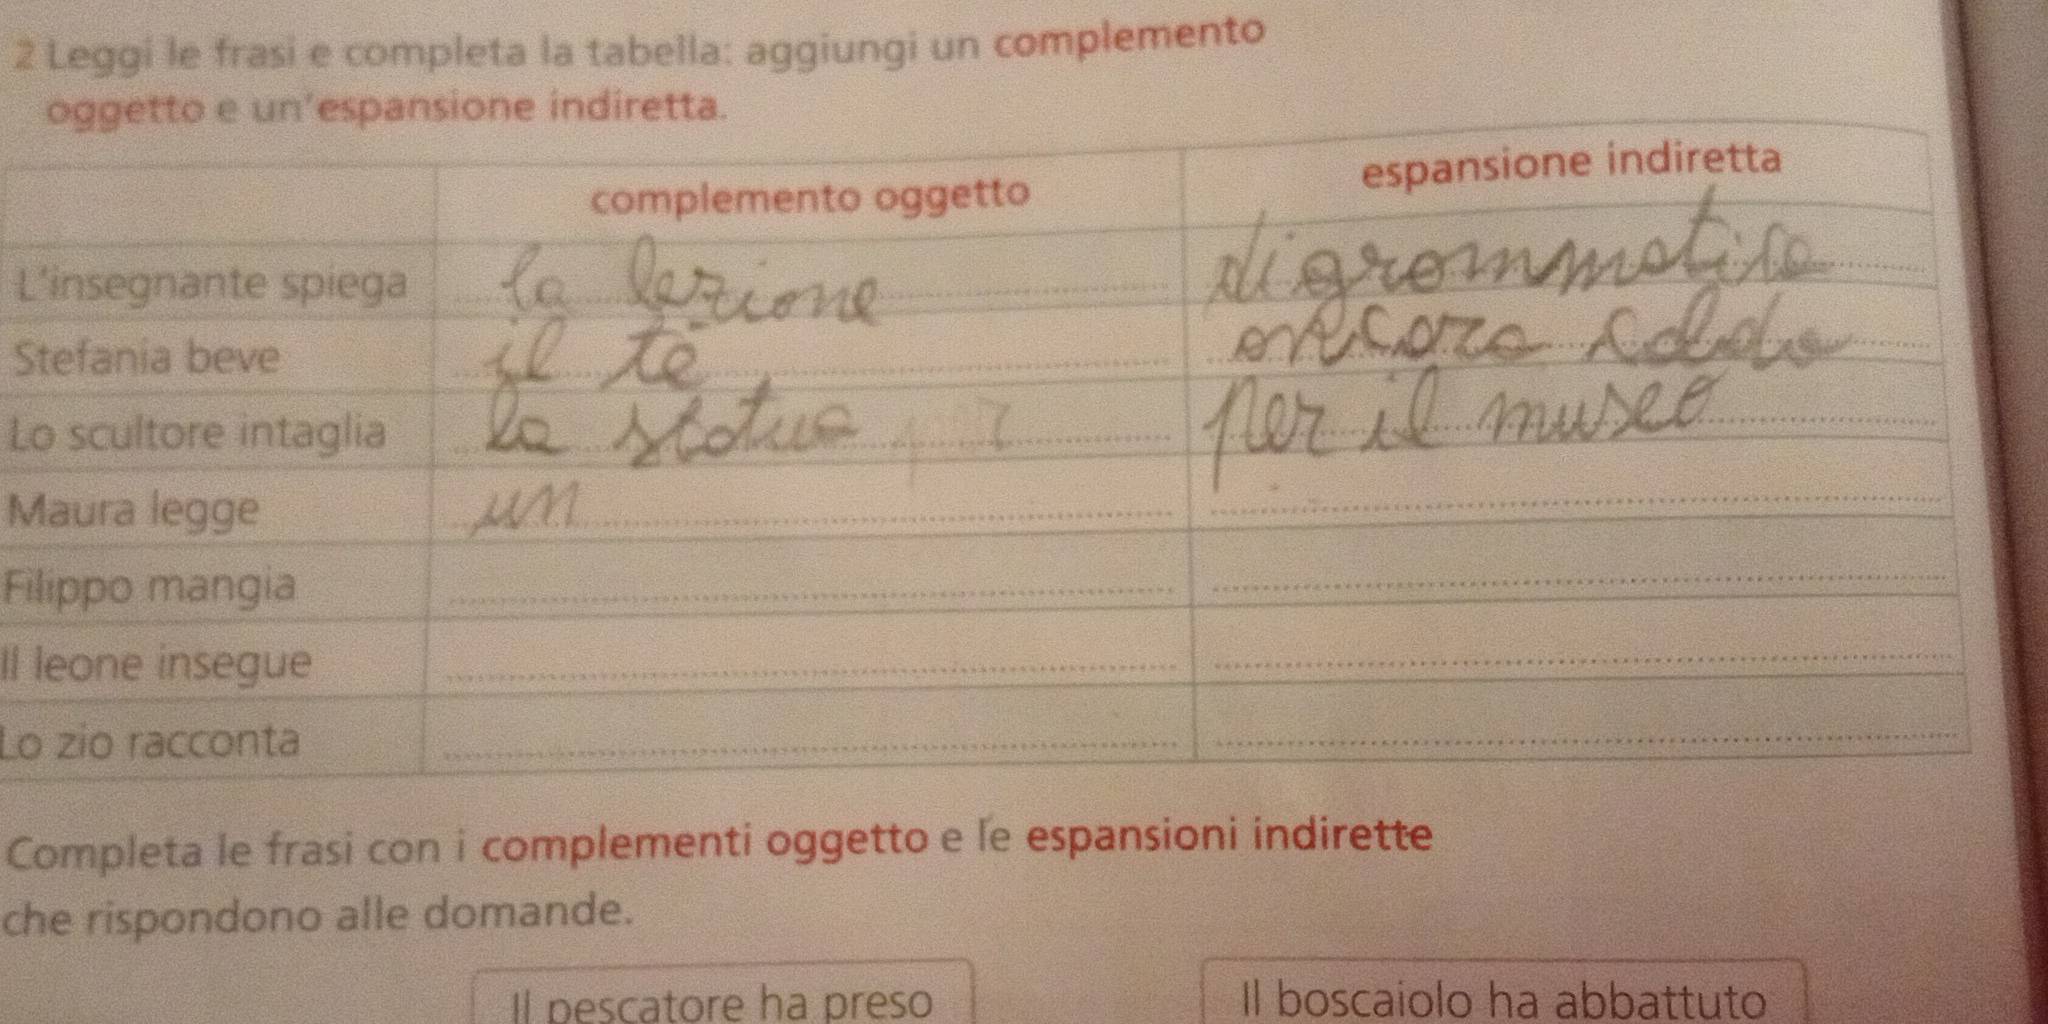 2 Leggi le frasi e completa la tabella: aggiungi un complemento
oggetto e un'espansione indiretta.
complemento oggetto espansione indiretta
L'insegnante spiega la lezione di grammatica
Stefania beve il tè ancora caldo
Lo scultore intaglia la statua per il museo
Maura legge un
Filippo mangia
Il leone insegue
Lo zio racconta
Completa le frasi con i complementi oggetto e le espansioni indirette
che rispondono alle domande.
Il pescatore ha preso Il boscaiolo ha abbattuto